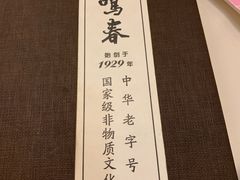 鸣春
始创于
1929年
中华老字号
国家级非物质文化